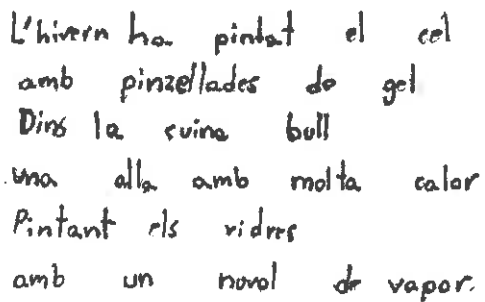 L'hivern ha pintat el cel
amb pinzellades de gel
Dins la cuina bull
una olla amb molta calor
Pintant els vidres
amb un novol de vapor.